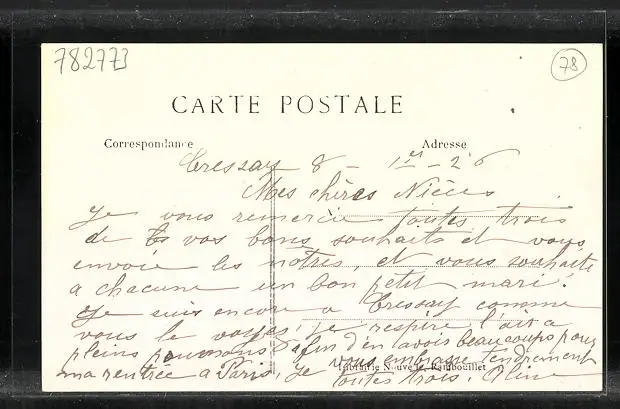 782773
78
CARTE POSTALE
Correspondance
Adresse
Cressay 8 - 1er - 26
Mes chères Nièces
Je vous remercie toutes trois
de vos bons souhaits et vous
envoie les nôtres, et vous souhaite
a chacune un bon petit mari.
Je suis encore a Cressay comme
vous le voyez, je respire l'air a
pleins poumons, afin d'en avoir beaucoup pour
ma rentrée a Paris. Je vous embrasse tendrement
toutes trois.
Librairie Nouvelle, Rambouillet